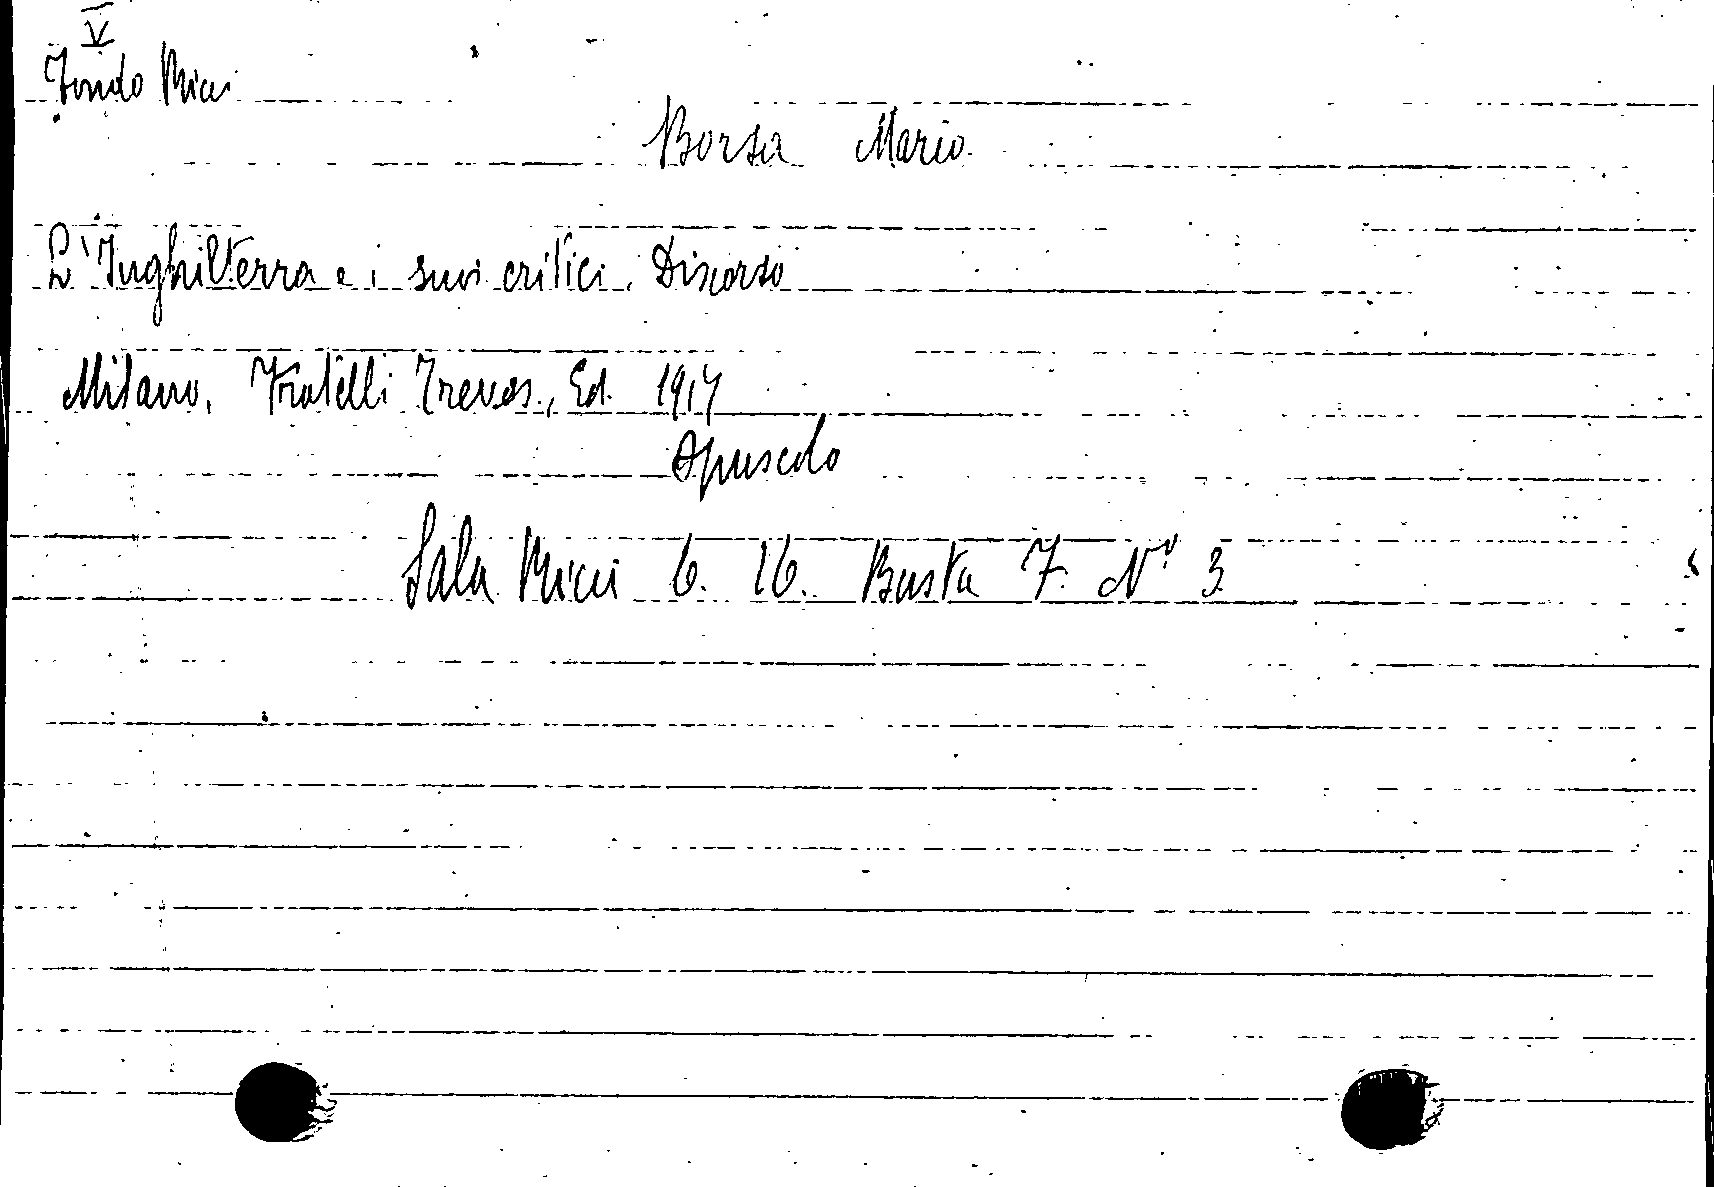 V
Fondo Ricci
Borsa Mario
L'Inghilterra e i suoi critici. Discorso
Milano, Fratelli Treves, Ed. 1917
Opuscolo
Sala Ricci 6. 16. Busta 7. N° 3